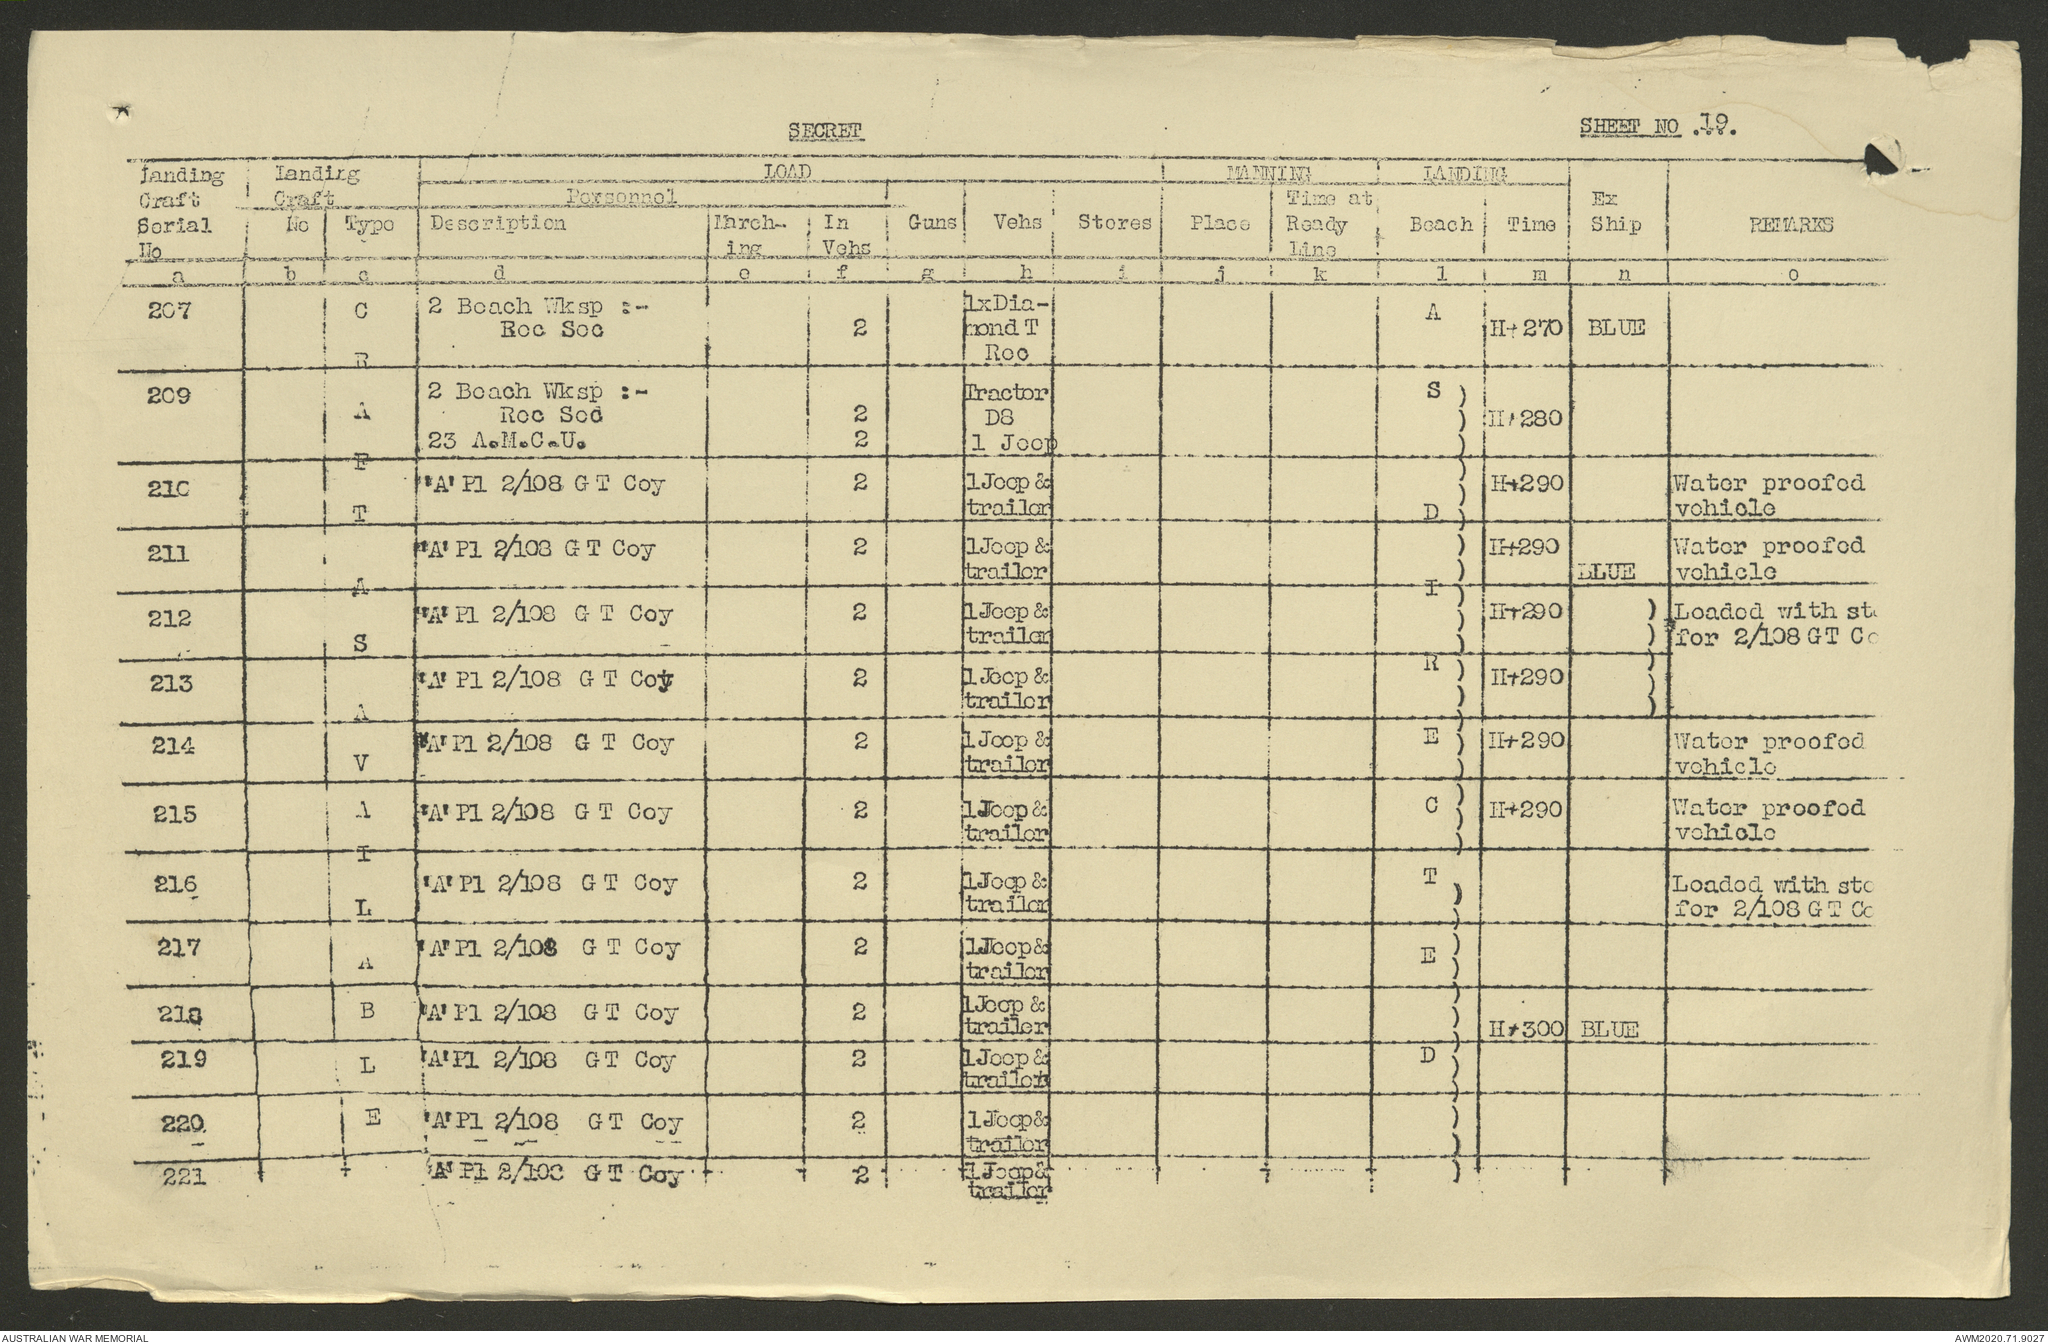 SECRET
SHEET NO .19.
Landing Craft Serial No | Landing Craft | LOAD | MANNING | LANDING | Ex Ship | REMARKS
Personnel
No | Type | Description | March-ing | In Vehs | Guns | Vehs | Stores | Place | Time at Ready Line | Beach | Time
a | b | c | d | e | f | g | h | i | j | k | l | m | n | o
207 | C | 2 Beach Wksp :- | 1xDia- | A
Rec Sec | 2 | mond T | H+270 | BLUE
R | Rec
209 | 2 Beach Wksp :- | Tractor | S )
A | Rec Sec | 2 | D8 | H+280
23 A.M.C.U. | 2 | 1 Jeep
F
210 | 'A' Pl 2/108 G T Coy | 2 | 1 Jeep & | H+290 | Water proofed
T | trailer | D | vehicle
211 | 'A' Pl 2/108 G T Coy | 2 | 1 Jeep & | H+290 | Water proofed
trailer | BLUE | vehicle
A | I
212 | 'A' Pl 2/108 G T Coy | 2 | 1 Jeep & | H+290 | ) | Loaded with sto
S | trailer | for 2/108 GT Co
R
213 | 'A' Pl 2/108 G T Coy | 2 | 1 Jeep & | H+290
A | trailer
214 | 'A' Pl 2/108 G T Coy | 2 | 1 Jeep & | E | H+290 | Water proofed
V | trailer | vehicle
215 | A | 'A' Pl 2/108 G T Coy | 2 | 1 Jeep & | C | H+290 | Water proofed
trailer | vehicle
I
216 | 'A' Pl 2/108 G T Coy | 2 | 1 Jeep & | T | Loaded with sto
L | trailer | for 2/108 GT Co
217 | 'A' Pl 2/108 G T Coy | 2 | 1 Jeep & | E
A | trailer
218 | B | 'A' Pl 2/108 G T Coy | 2 | 1 Jeep &
trailer | H+300 | BLUE
219 | L | 'A' Pl 2/108 G T Coy | 2 | 1 Jeep & | D
trailer
220 | E | 'A' Pl 2/108 G T Coy | 2 | 1 Jeep &
trailer
221 | 'A' Pl 2/108 G T Coy | 2 | 1 Jeep &
trailer
AUSTRALIAN WAR MEMORIAL
AWM2020.71.9027